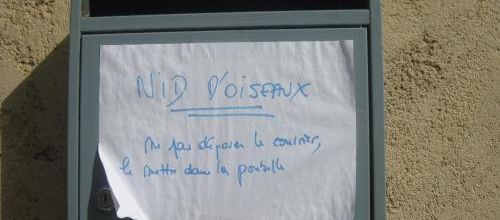 NiD D'OiSEAUX
Ne pas déposer le courrier,
le mettre dans la poubelle